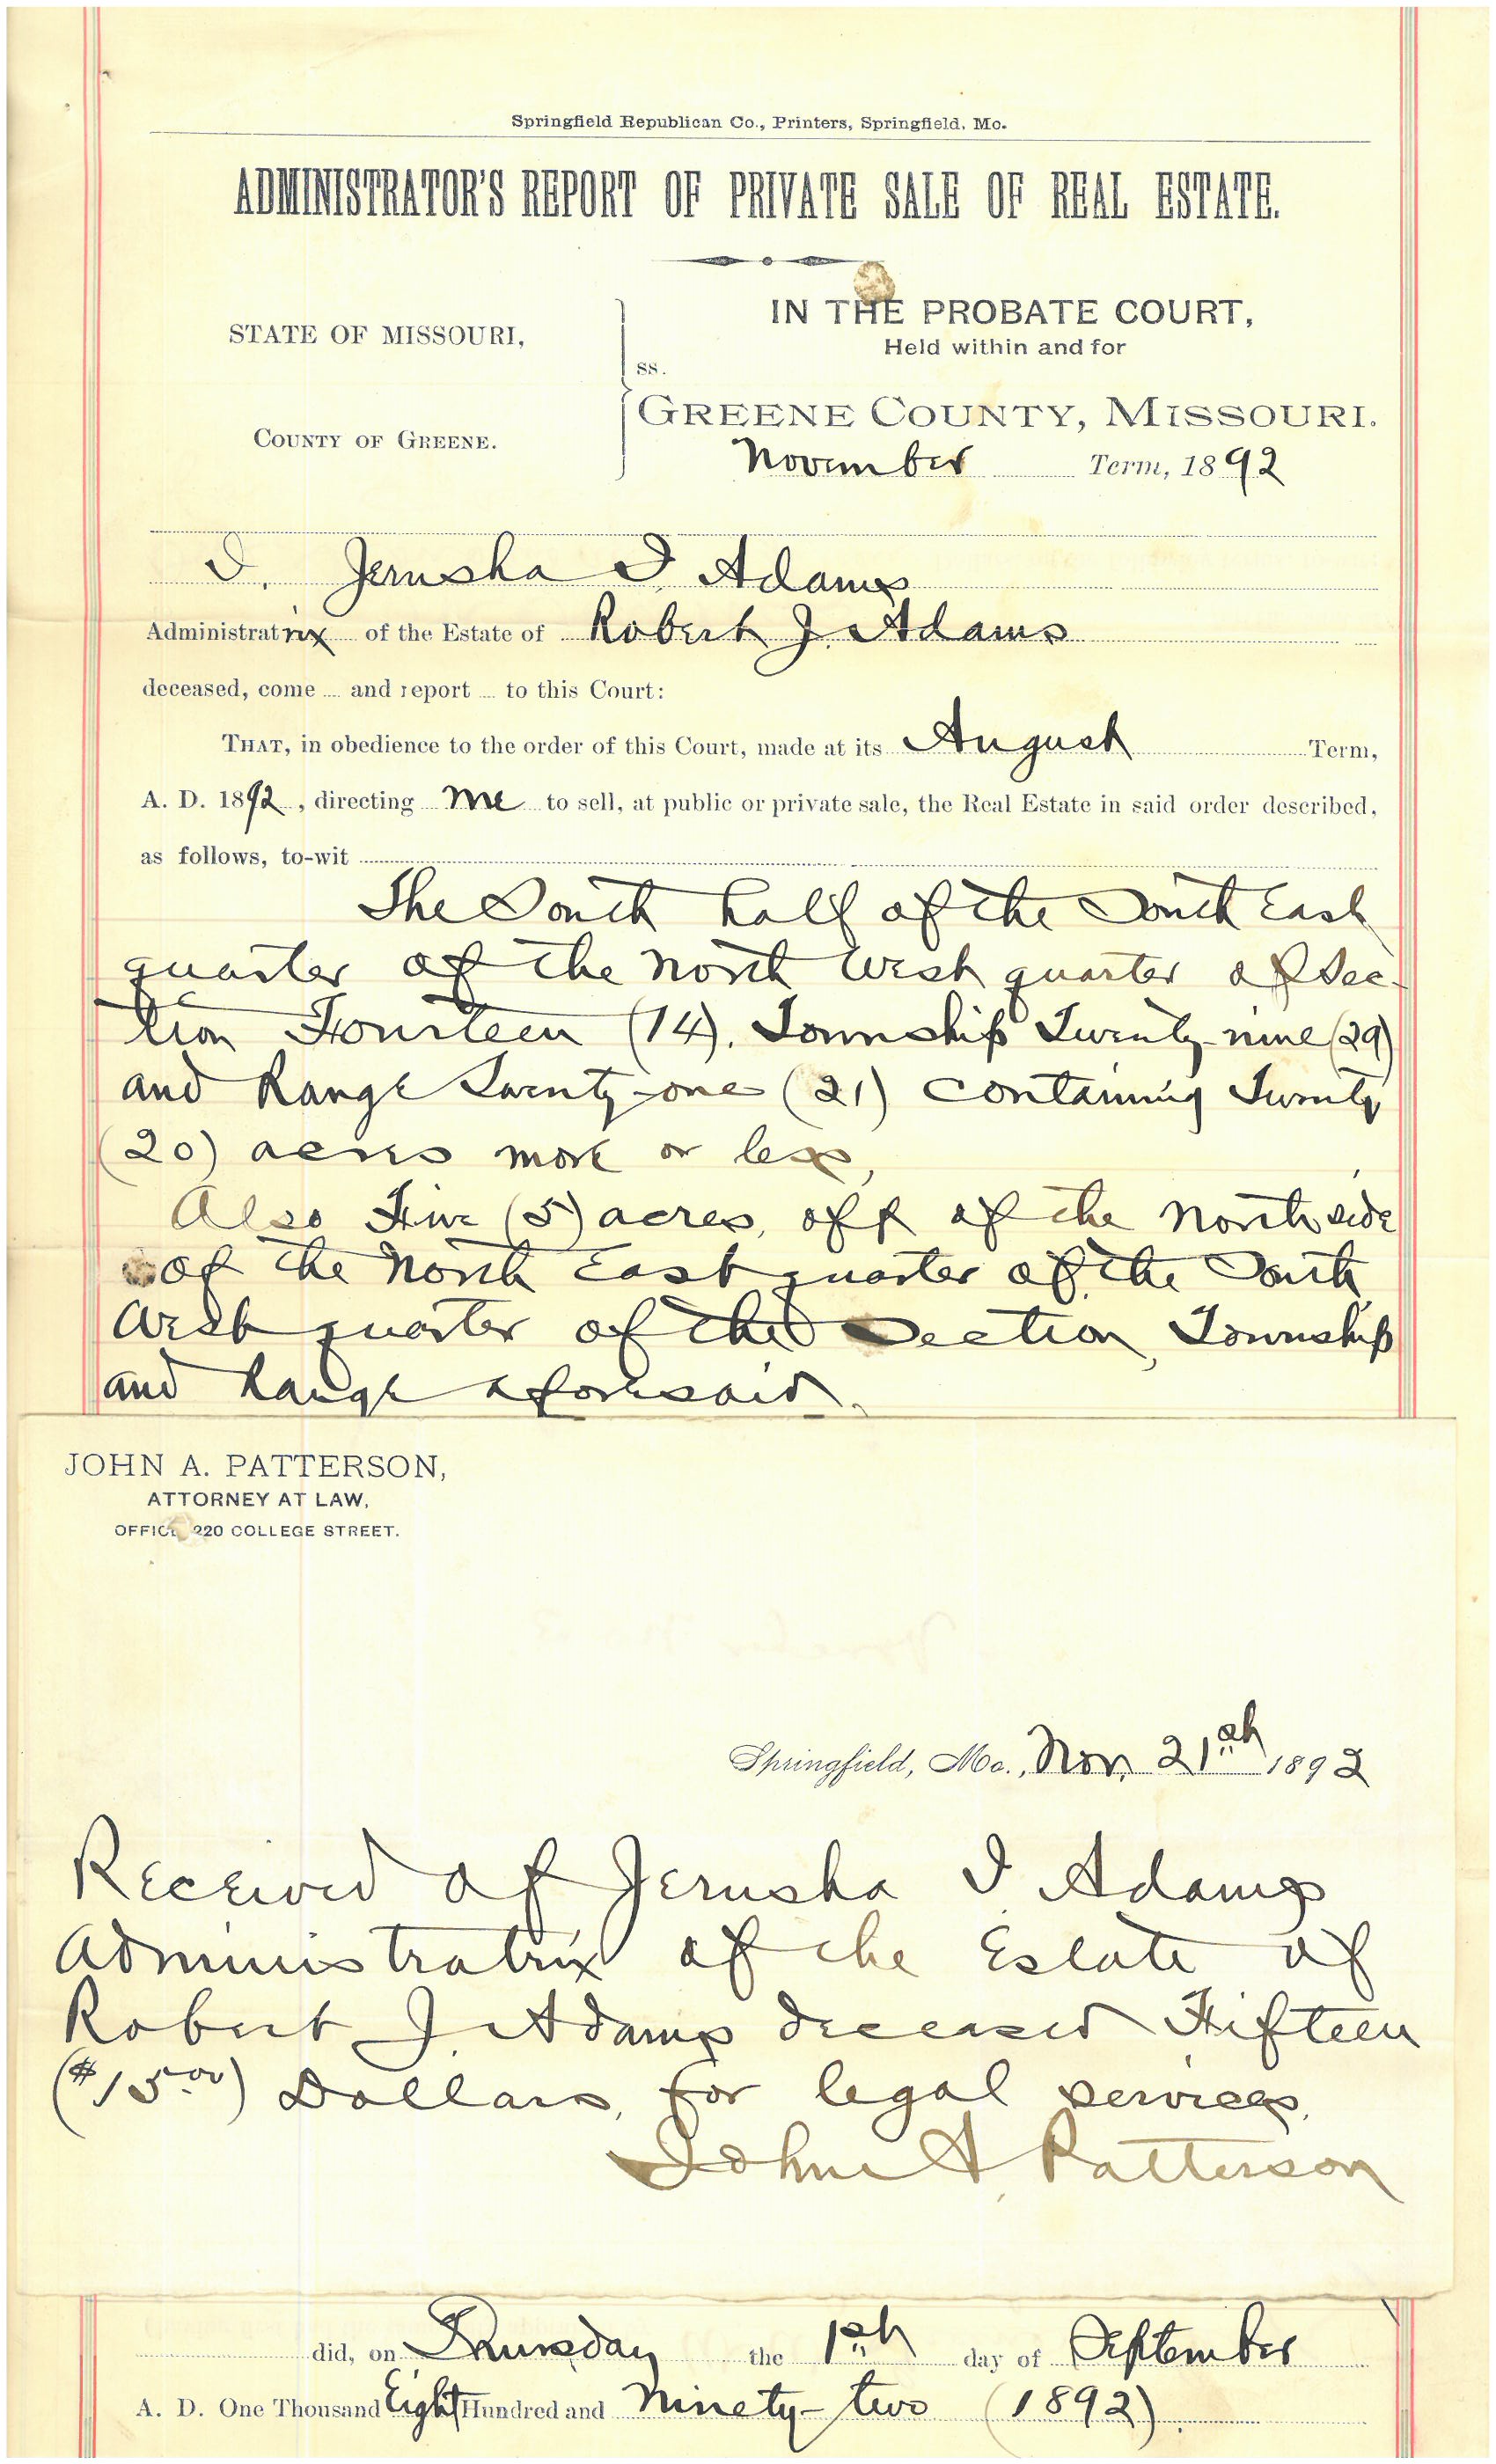 Springfield Republican Co., Printers, Springfield, Mo.
ADMINISTRATOR'S REPORT OF PRIVATE SALE OF REAL ESTATE.
STATE OF MISSOURI,
COUNTY OF GREENE.
ss.
IN THE PROBATE COURT,
Held within and for
GREENE COUNTY, MISSOURI.
November Term, 1892
I, Jerusha I. Adams
Administratrix of the Estate of Robert J. Adams
deceased, come and report to this Court:
THAT, in obedience to the order of this Court, made at its August Term,
A. D. 1892, directing me to sell, at public or private sale, the Real Estate in said order described,
as follows, to-wit
The South half of the South East
quarter of the North West quarter of Sec-
tion Fourteen (14), Township Twenty-nine (29)
and Range Twenty-one (21) containing Twenty
(20) acres more or less,
Also Five (5) acres, off of the North side
of the North East quarter of the South
West quarter of the Section, Township
and Range aforesaid.
JOHN A. PATTERSON,
ATTORNEY AT LAW,
OFFICE 220 COLLEGE STREET.
Springfield, Mo., Nov. 21st 1892
Received of Jerusha I. Adams
Administratrix of the Estate of
Robert J. Adams deceased Fifteen
($15.00) Dollars, for legal services.
John A. Patterson
did, on Thursday the 1st day of September
A. D. One Thousand Eight Hundred and Ninety-two (1892).